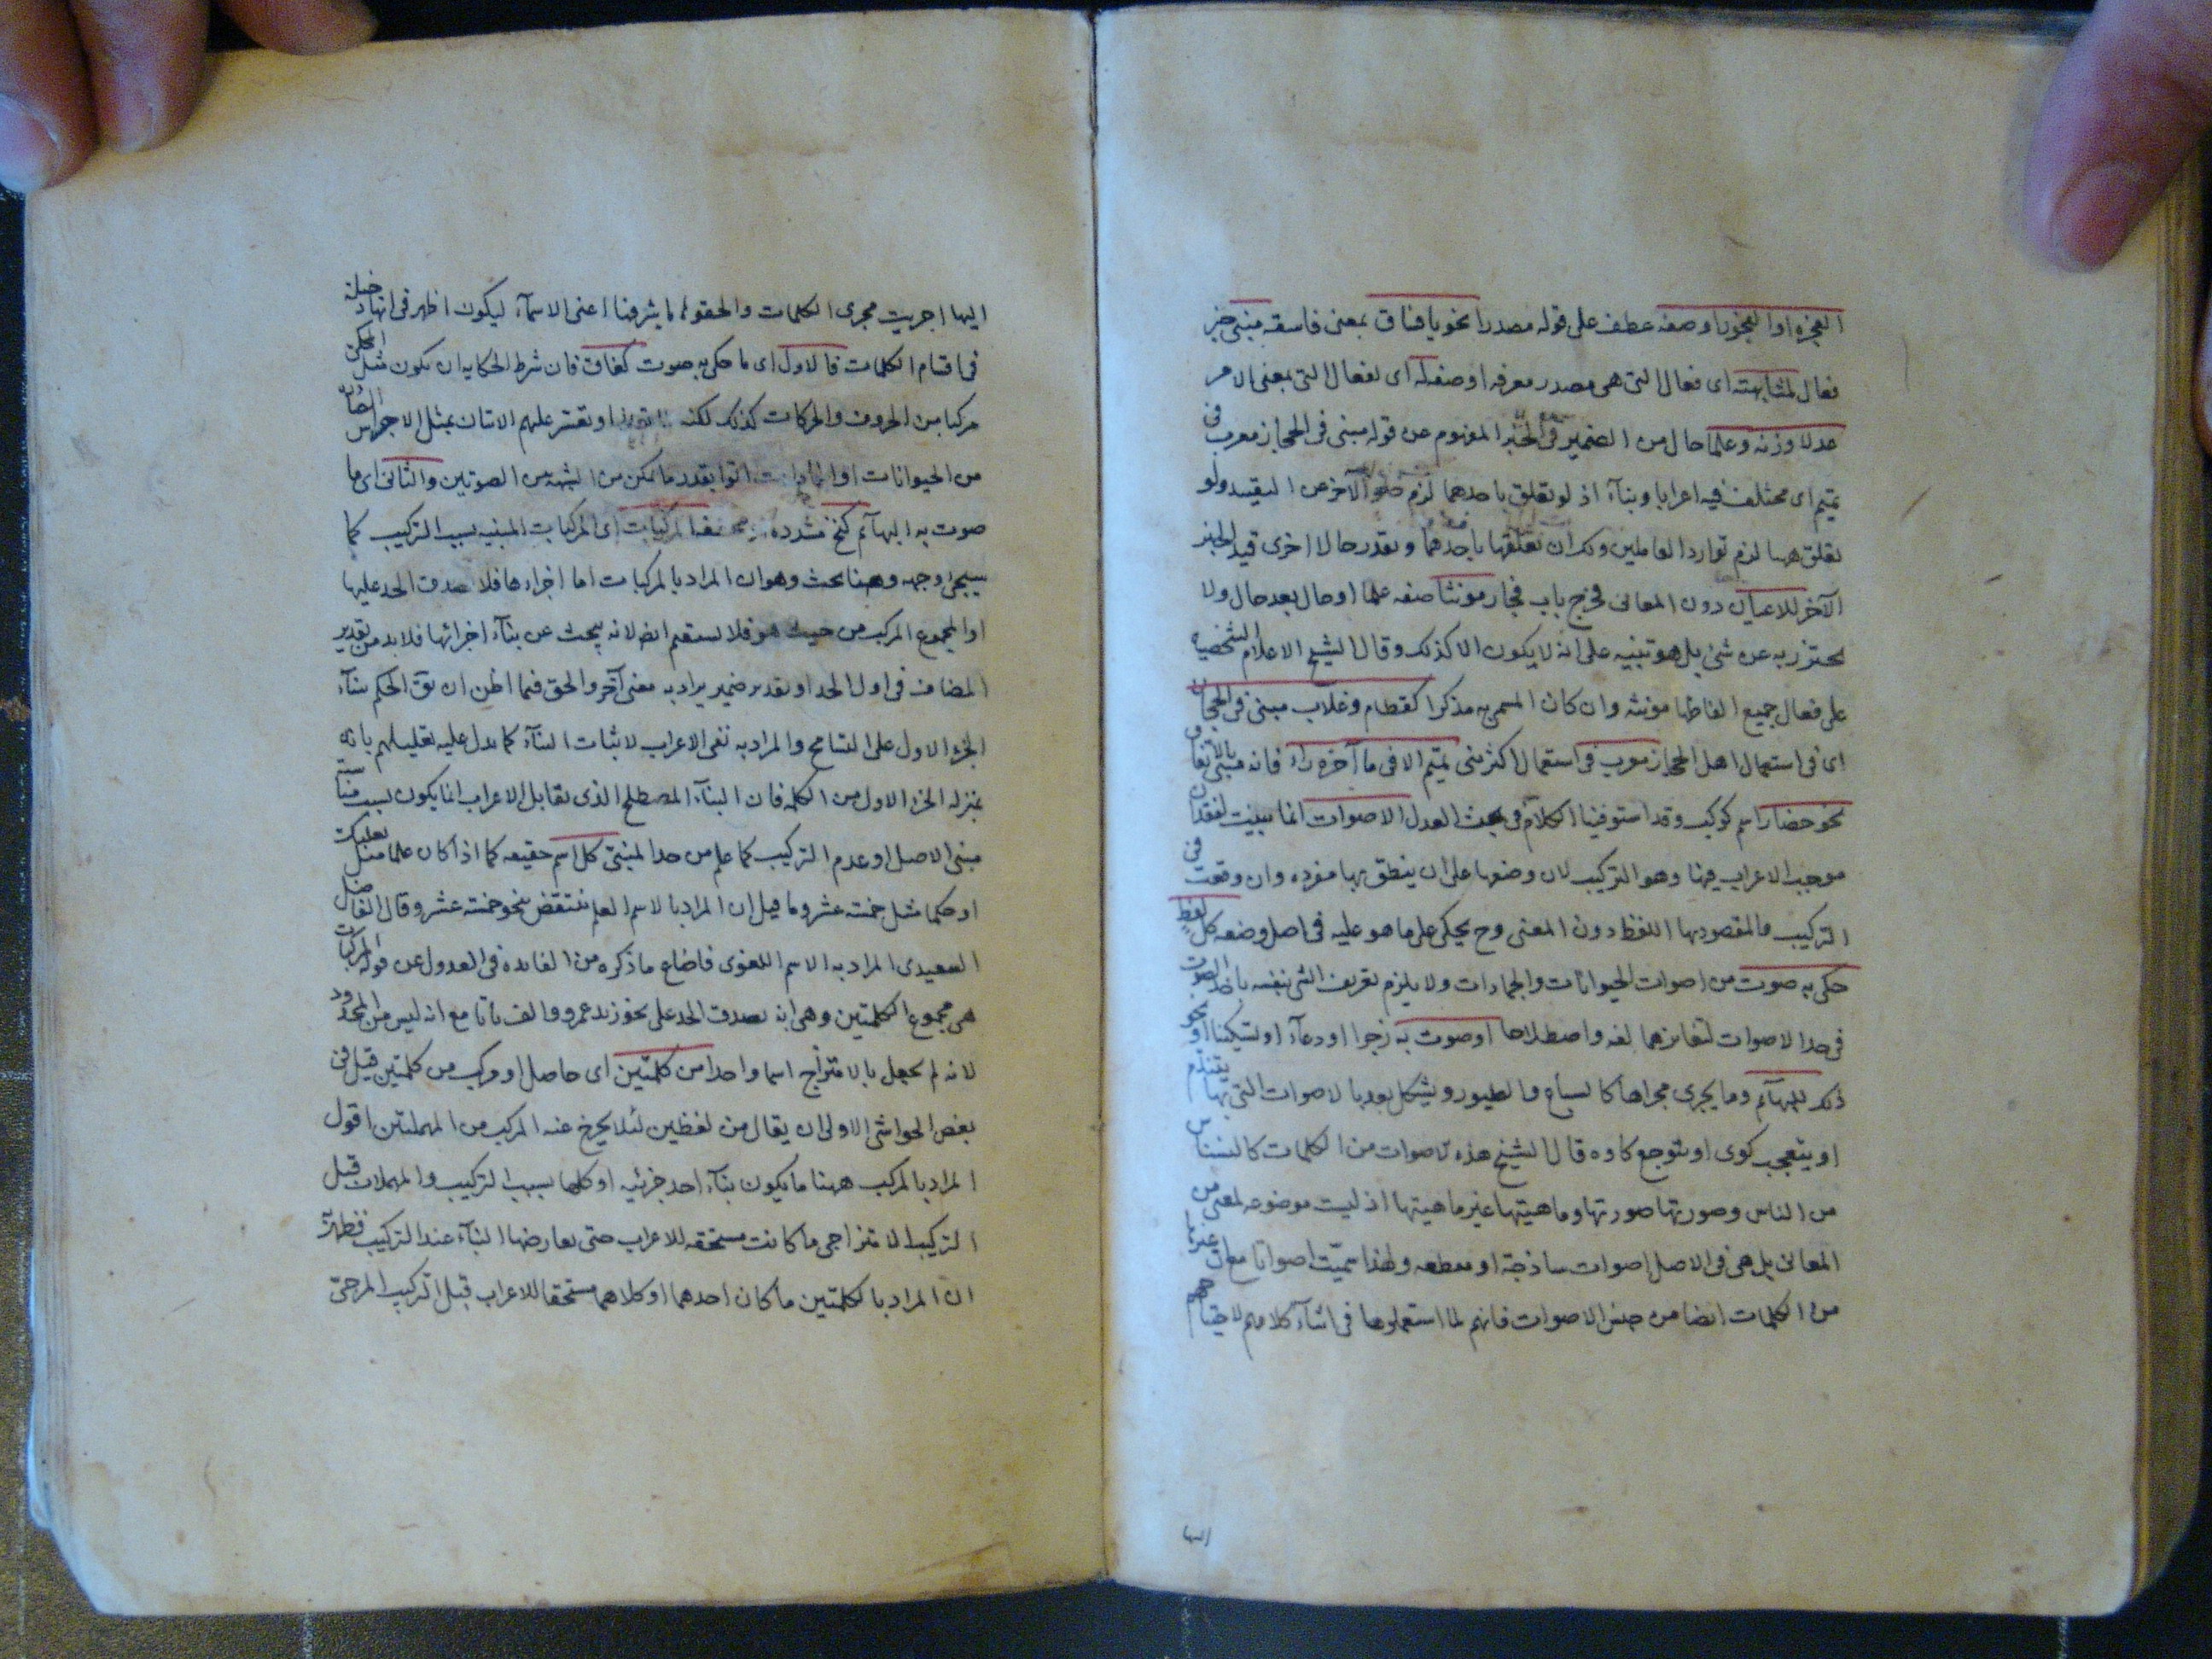 الفجرة او الفجور او صفة عطف على قوله مصدرا نحو يا فساق بمعنى فاسقة مبنى خبر
فعال لمشابهته اى فعال التى هى مصدر معرفه او صفه له اى لفعال التى بمعنى الامر
عدلا وزنه وعلما حال من الضمير فى الخبر المفهوم من قوله مبنى فى الحجاز معرب فى
تميم اى مختلف فيه اعرابا وبناء اذ لو تعلق باحدهما لزم خلو الآخر عن التقييد ولو
تعلق بهما لزم توارد العاملين ولك ان تعلقها باحدهما وتقدر حالا اخرى قيد الخبر
الآخر للاعيان دون المعانى فخرج باب فجار مونثا صفه علما او حال بعد حال ولا
يحترز به عن شئ بل هو تنبيه على انه لا يكون الا كذلك وقال الشيخ الاعلام الشخصيه
على فعال جميع الفاظها مونثه وان كان المسمى به مذكرا كقطام وغلاب مبنى فى الحجاز
اى فى استعمال اهل الحجاز معرب فى استعمال اكثر بنى تميم الا فى ما آخره راء فانه مبنى بالاتفاق
نحو حضار اسم كوكب وقد استوفينا الكلام فى بحث العدل الاصوات انما بنيت لفقدان
موجب الاعراب فيها وهو التركيب لان وضعها على ان ينطق بها مفرده وان وقعت فى
التركيب فالمقصود بها اللفظ دون المعنى وح يحكى على ما هو عليه فى اصل وضعه كل لفظ
حكى به صوت من اصوات الحيوانات والجمادات ولا يلزم تعريف الشئ بنفسه باخذ الصوت
فى حد الاصوات لتغايرهما لغه واصطلاحا او صوت به زجرا او دعاء او تسكينا او نحو
ذلك للبهائم وما يجرى مجراها كالسباع والطيور ويشكل بعد بالاصوات التى بها يتندم
او يتعجب كوى او يتوجع كاوه قال الشيخ هذه الاصوات من الكلمات كالنسناس
من الناس وصورتها صورتها وماهيتها غير ماهيتها اذ ليست موضوعه لمعنى من
المعانى بل هى فى الاصل اصوات ساذجة او مقطعه ولهذا سميت اصواتا مع ان غيرها
من الكلمات ايضا من جنس الاصوات فانهم لما استعملوها فى اثناء كلامهم لاحتياجهم
اليها
اليها اجريت مجرى الكلمات والحقوها باشرفها اعنى الاسماء ليكون اظهر فى انها دخيلة
فى اقسام الكلمات فالاول اى ما حكى به صوت كغاق فان شرط الحكايه ان يكون مثل المحكى
مركبا من الحروف والحركات كذلك لكنه او تعسر عليهم الاتيان بمثل الاجراس
من الحيوانات او الجمادات اتوا بقدر ما يمكن من الشبه من الصوتين والثانى اى ما
صوت به البهائم كنخ مشدده المركبات اى المركبات المبنيه بسبب التركيب كما
سيجئ وجهه وههنا بحث وهو ان المراد بالمركبات اما اجزاءها فلا صدق الحد عليها
او المجموع المركب من حيث هو فلا يستقيم ايضا لانه يبحث عن بناء اجزائها فلا بد من تقدير
المضاف فى اول الحد او تقدير ضمير يراد به معنى آخر والحق فيما اظن ان نق الحكم ببناء
الجزء الاول على التسامح والمراد به نفى الاعراب لا ثبات البناء كما يدل عليه تعليلهم بانه
بمنزله الجزء الاول من الكلمه فان البناء المصطلح الذى يقابل الاعراب انما يكون بسبب مناسبة
مبنى الاصل او عدم التركيب كما علم من حد المبنى كل اسم حقيقه كما اذا كان علما مثل بعلبك
او حكما مثل خمسة عشر وما قيل ان المراد بالاسم العلم ينتقض بنحو خمسة عشر وقال الفاضل
السعيدى المراد به الاسم اللغوى فاضاع ما ذكره من الفايده فى العدول عن قوله المركبات
هى مجموع الكلمتين وهى انه يصدق الحد على نحو زيد عمرو والف باتا مع انه ليس من المحدود
لانه لم يجعل بالامتزاج اسما واحدا من كلمتين اى حاصل او مركب من كلمتين قيل فى
بعض الحواشى الاولى ان يقال من لفظين لئلا يخرج عنه المركب من المهملتين اقول
المراد بالمركب ههنا ما يكون بناء احد جزئيه او كلها بسبب التركيب والمهملات قبل
التركيب الامتزاجى ما كانت مستحقه للاعراب حتى يعارضها البناء عند التركيب فظهر
ان المراد بالكلمتين ما كان احدهما او كلاهما مستحقا للاعراب قبل التركيب المزجى